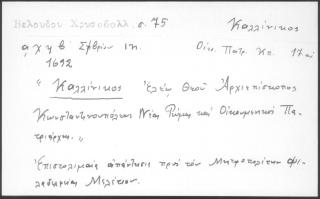 Βελουδου Χρυσοβουλλ. σ. 75
Καλλίνικος
αχϟβ΄ Σ/βρίου ιη.
Οἰκ. Πατρ. Κπ. 17 αἰ
1692
" Καλλίνικος Ἐλέῳ Θεοῦ Ἀρχιεπίσκοπος
Κωνσταντινουπόλεως Νέας Ρώμης καὶ Οἰκουμενικὸς Πα-
τριάρχης. "
Ἐπιστολιμαία ἀπάντησις πρὸς τὸν Μητροπολίτην Φι-
λαδελφείας Μελέτιον.